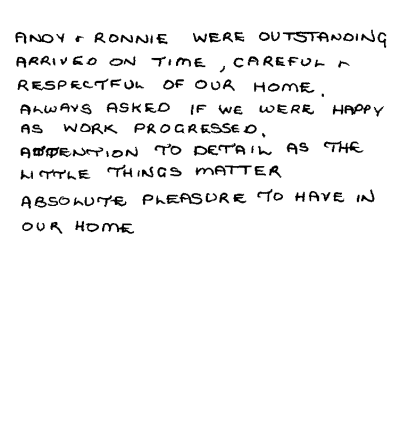 ANDY & RONNIE WERE OUTSTANDING
ARRIVED ON TIME, CAREFUL &
RESPECTFUL OF OUR HOME.
ALWAYS ASKED IF WE WERE HAPPY
AS WORK PROGRESSED.
ATTENTION TO DETAIL AS THE
LITTLE THINGS MATTER
ABSOLUTE PLEASURE TO HAVE IN
OUR HOME